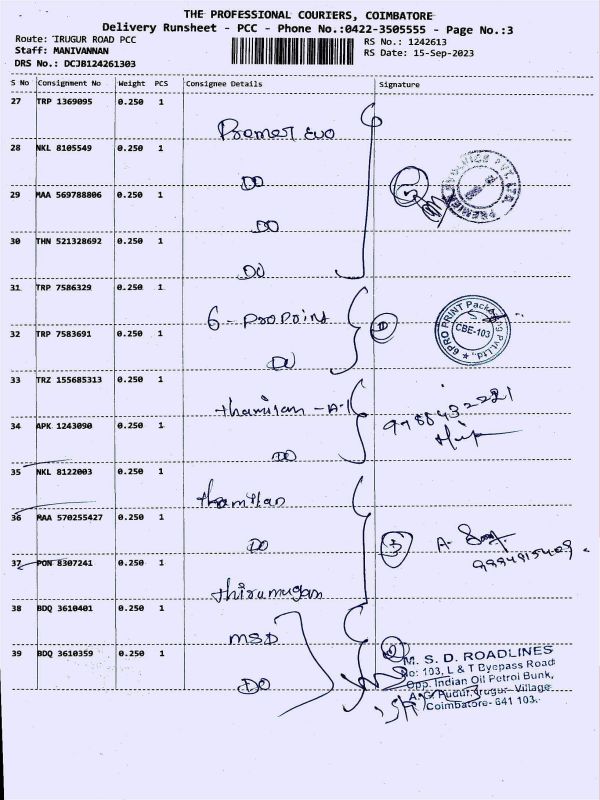 THE PROFESSIONAL COURIERS, COIMBATORE
Delivery Runsheet - PCC - Phone No.:0422-3505555 - Page No.:3
Route: IRUGUR ROAD PCC
RS No.: 1242613
Staff: MANIVANNAN
RS Date: 15-Sep-2023
DRS No.: DCJB124261303
S No Consignment No Weight PCS Consignee Details Signature
27 TRP 1369095 0.250 1
28 NKL 8105549 0.250 1
DO
29 MAA 569788806 0.250 1
DO
30 THN 521328692 0.250 1
DO
31 TRP 7586329 0.250 1
6-ProPoint
6PRO PRINT Packaging Pvt.Ltd.,
CBE-103
32 TRP 7583691 0.250 1
DO
33 TRZ 155685313 0.250 1
thamilan-A-1
34 APK 1243090 0.250 1
DO
35 NKL 8122003 0.250 1
thamilan
36 MAA 570255427 0.250 1
DO
37 PON 8307241 0.250 1
thirumugan
38 BDQ 3610401 0.250 1
MSD
39 BDQ 3610359 0.250 1
DO
M. S. D. ROADLINES
No: 103, L & T Byepass Road
Opp. Indian Oil Petrol Bunk,
A.G. Pudur, Irugur Village
Coimbatore- 641 103.